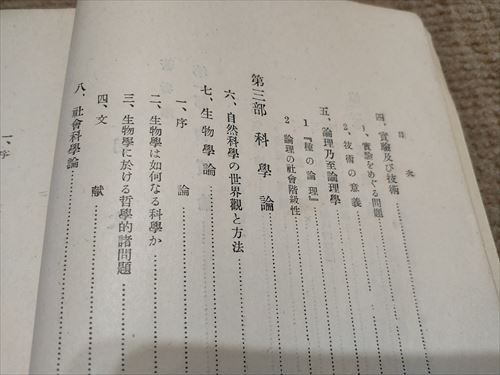 目次
四、實驗及び技術
1、實驗をめぐる問題
2、技術の意義
五、論理乃至論理學
1 『種の論理』
2 論理の社會階級性
第三部 科學論
六、自然科學の世界觀と方法
七、生物學論
一、序論
二、生物學は如何なる科學か
三、生物學に於ける哲學的諸問題
四、文獻
八、社會科學論
一、序